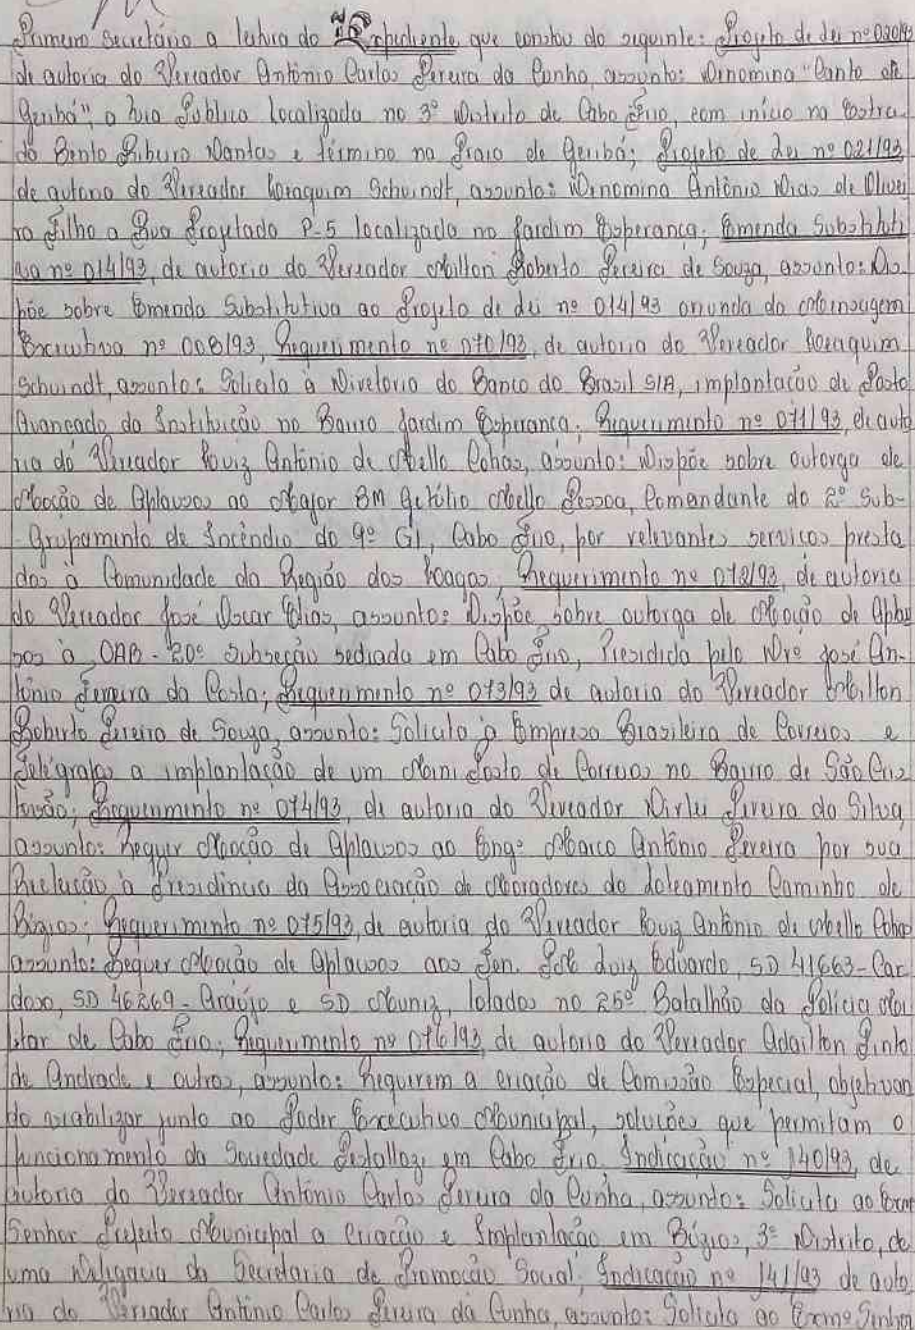 Primeiro Secretário a leitura do Expediente que constou do seguinte: Projeto de Lei nº 020/93
de autoria do Vereador Antônio Carlos Pereira da Cunha, assunto: Denomina "Canto de
Geribá", a Via Pública localizada no 3º Distrito de Cabo Frio, com início na Estra-
da Bento Ribeiro Dantas e término na Praia de Geribá; Projeto de Lei nº 021/93
de autoria do Vereador Joaquim Schuindt, assunto: Denomina Antônio Dias de Olivei
ra Filho a Rua Projetada P-5 localizada no Jardim Esperança; Emenda Substituti
va nº 014/93, de autoria do Vereador Milton Roberto Pereira de Souza, assunto: Dis
põe sobre Emenda Substitutiva ao Projeto de Lei nº 014/93 oriunda da Mensagem
Executiva nº 008/93, Requerimento nº 070/93, de autoria do Vereador Joaquim
Schuindt, assunto: Solicita à Diretoria do Banco do Brasil S/A, implantação de Posto
Avançado da Instituição no Bairro Jardim Esperança; Requerimento nº 071/93, de auto
ria do Vereador Luiz Antônio de Mello Cotias, assunto: Dispõe sobre outorga de
Moção de Aplausos ao Major BM Getúlio Mello Pessoa, Comandante do 2º Sub-
-Grupamento de Incêndio do 9º GI, Cabo Frio, por relevantes serviços presta
dos à Comunidade da Região dos Lagos; Requerimento nº 072/93, de autoria
do Vereador José Oscar Elias, assunto: Dispõe sobre outorga de Moção de Aplau
sos à OAB - 20ª Subseção sediada em Cabo Frio, Presidida pelo Drº José An-
tônio Ferreira da Costa; Requerimento nº 073/93 de autoria do Vereador Milton
Roberto Pereira de Souza, assunto: Solicita à Empresa Brasileira de Correios e
Telégrafos a implantação de um Mini Posto de Correios no Bairro de São Cris
tóvão; Requerimento nº 074/93, de autoria do Vereador Dirlei Pereira da Silva,
assunto: Requer Moção de Aplausos ao Engº Marco Antônio Pereira por sua
Reeleição à Presidência da Associação de Moradores do Loteamento Caminho de
Búzios; Requerimento nº 075/93, de autoria do Vereador Luiz Antônio de Mello Cotias
assunto: Requer Moção de Aplausos aos Ten. Luiz Eduardo, SD 41663-Car
doso, SD 46269-Araújo e SD Muniz, lotados no 25º Batalhão da Polícia Mi
litar de Cabo Frio; Requerimento nº 076/93, de autoria do Vereador Adailton Pinto
de Andrade e outros, assunto: Requerem a criação de Comissão Especial, objetivan
do viabilizar junto ao Poder Executivo Municipal, soluções que permitam o
funcionamento da Sociedade Pestallozi em Cabo Frio. Indicação nº 140/93, de
autoria do Vereador Antônio Carlos Pereira da Cunha, assunto: Solicita ao Exmº
Senhor Prefeito Municipal a Criação e Implantação em Búzios, 3º Distrito, de
uma Delegacia da Secretaria de Promoção Social; Indicação nº 141/93 de auto
ria do Vereador Antônio Carlos Pereira da Cunha, assunto: Solicita ao Exmº Senhor